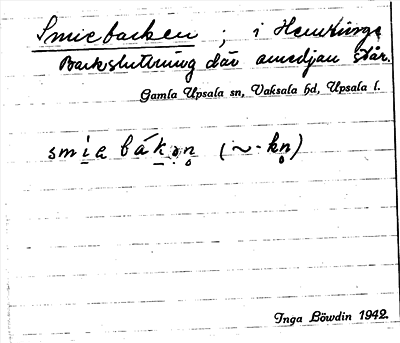 Smiebacken ; i Hemringe
Backsluttning där smedjan står.
Gamla Upsala sn, Vaksala hd, Upsala l.
smi̱a bák̠ən̥ (~ - kn̥)
Inga Löwdin 1942.